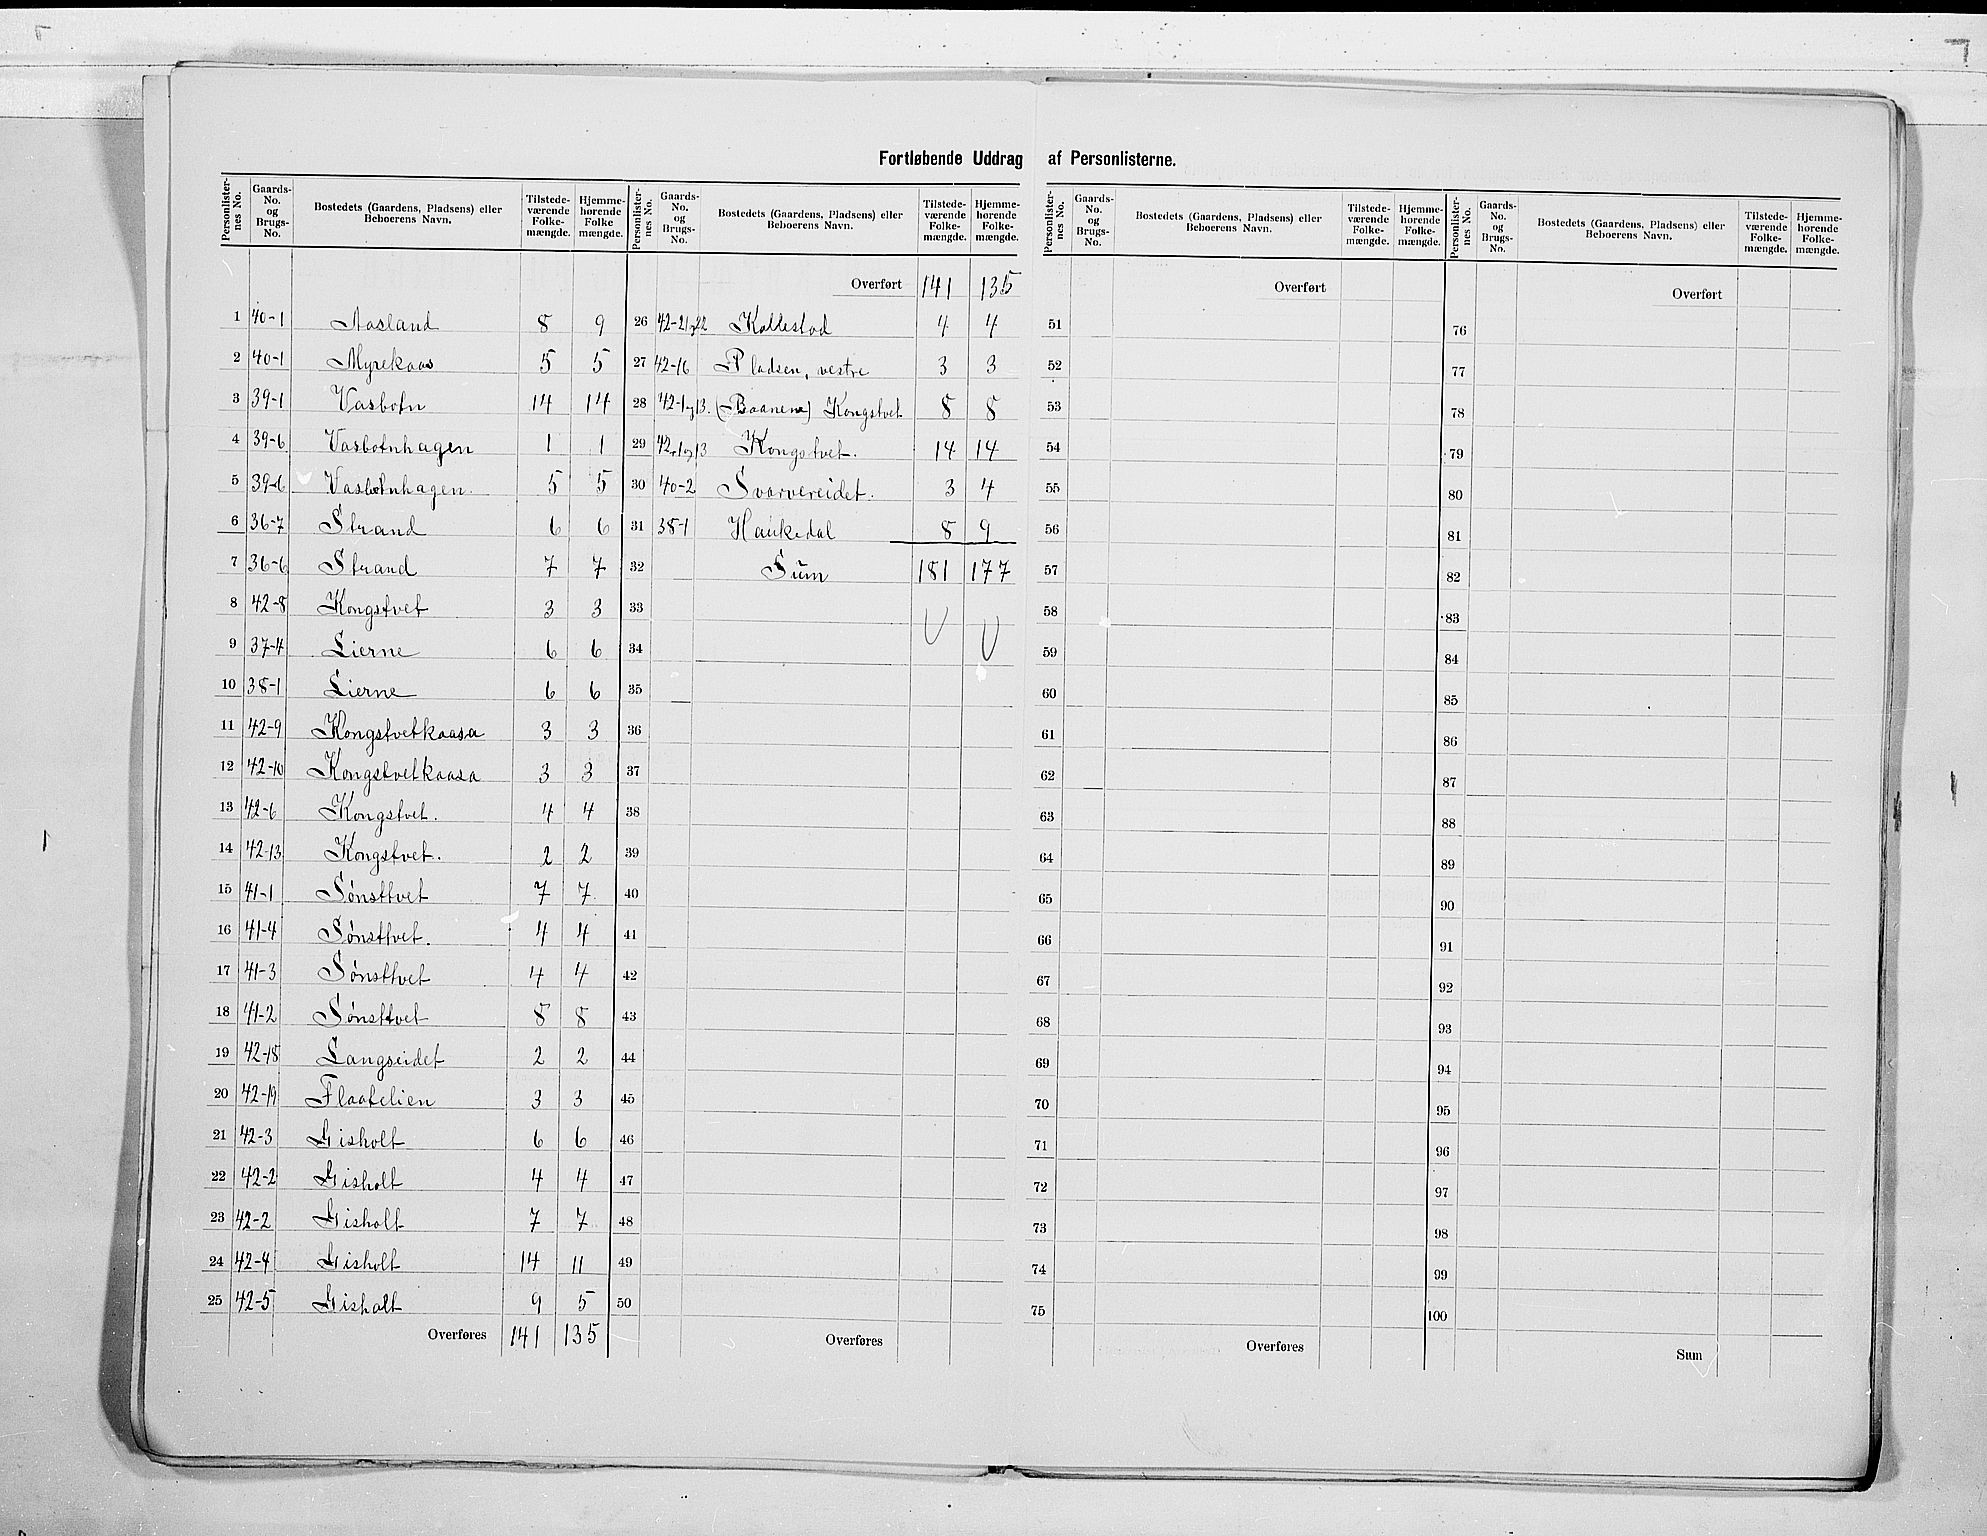 Fortløbende Uddrag af Personlisterne.
Personlister-nes No. Gaards-No. og Brugs-No. Bostedets (Gaardens, Pladsens) eller Beboerens Navn. Tilstede-værende Folke-mængde. Hjemme-hørende Folke mængde.
1 40-1 Aasland 8 9
2 40-1 Myrekaas 5 5
3 39-1 Vasbotn 14 14
4 39-6 Vasbotnhagen 1 1
5 39-6 Vasbotnhagen. 5 5
6 36-7 Strand 6 6
7 36-6 Strand 7 7
8 42-8 Kongstvet 3 3
9 37-4 Lierne 6 6
10 38-1 Lierne 6 6
11 42-9 Kongstvetkaasa 3 3
12 42-10 Kongstvetkaasa 3 3
13 42-6 Kongstvet. 4 4
14 42-13 Kongstvet. 2 2
15 41-1 Sønsttvet 7 7
16 41-4 Sønsttvet. 4 4
17 41-3 Sønsttvet 4 4
18 41-2 Sønsttvet 8 8
19 42-18 Langseidet 2 2
20 42-19 Flaatelien 3 3
21 42-3 Gisholt 6 6
22 42-2 Gisholt 4 4
23 42-2 Gisholt 7 7
24 42-4 Gisholt 14 11
25 42-5 Gisholt 9 5
Overføres 141 135
Personlister-nes No. Gaards-No. og Brugs-No. Bostedets (Gaardens, Pladsens) eller Beboerens Navn. Tilstede-værende Folke-mængde. Hjemme-hørende Folke-mængde.
Overført 141 135
26 42-21og22 Kollestad 4 4
27 42-16 Pladsen, vestre 3 3
28 42-1og13. (Baanene) Kongstvet 8 8
29 42-1og13 Kongstvet. 14 14
30 40-2 Svarvereidet. 3 4
31 38-1 Haukedal 8 9
32 Sum 181 177
33
34
35
36
37
38
39
40
41
42
43
44
45
46
47
48
49
50
Overføres
Personlister-nes No. Gaards-No. og Brugs-No. Bostedets (Gaardens, Pladsens) eller Beboerens Navn. Tilstede-værende Folke-mængde. Hjemme-hørende Folke-mængde.
Overført
51
52
53
54
55
56
57
58
59
60
61
62
63
64
65
66
67
68
69
70
71
72
73
74
75
Overføres
Personlister-nes No. Gaards-No. og Brugs-No. Bostedets (Gaardens, Pladsens) eller Beboerens Navn. Tilstede-værende Folke-mængde. Hjemme-hørende Folke-mængde.
Overført
76
77
78
79
80
81
82
83
84
85
86
87
88
89
90
91
92
93
94
95
96
97
98
99
100
Sum